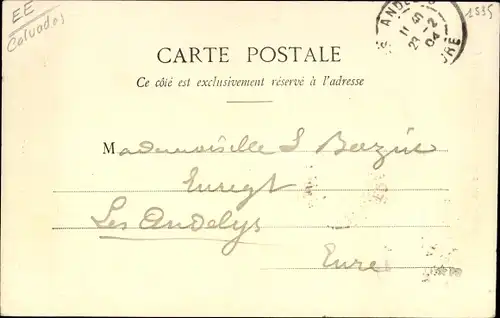 EE
Calvados
ANDE
11 S
23 -2
04
URE
1535
CARTE POSTALE
Ce côté est exclusivement réservé à l'adresse
Mademoiselle S Bazin
Les Andelys
Eure